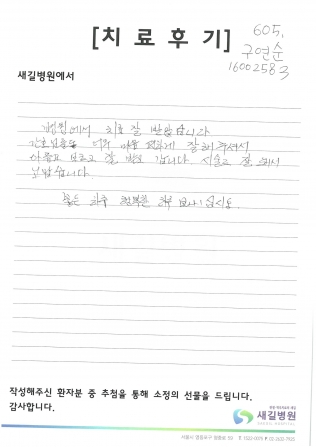 605,
[치료후기]
구연순
16002583
새길병원에서
치료 잘 받았습니다
간호사분들 너무 마음 편하게 잘해 주셔서
잘 받고 갑니다. 시술도 잘
좋은 하루 행복한 하루 보내십시요
작성해주신 환자분 중 추첨을 통해 소정의 선물을 드립니다.
감사합니다.
새길병원
SAEGIL HOSPITAL